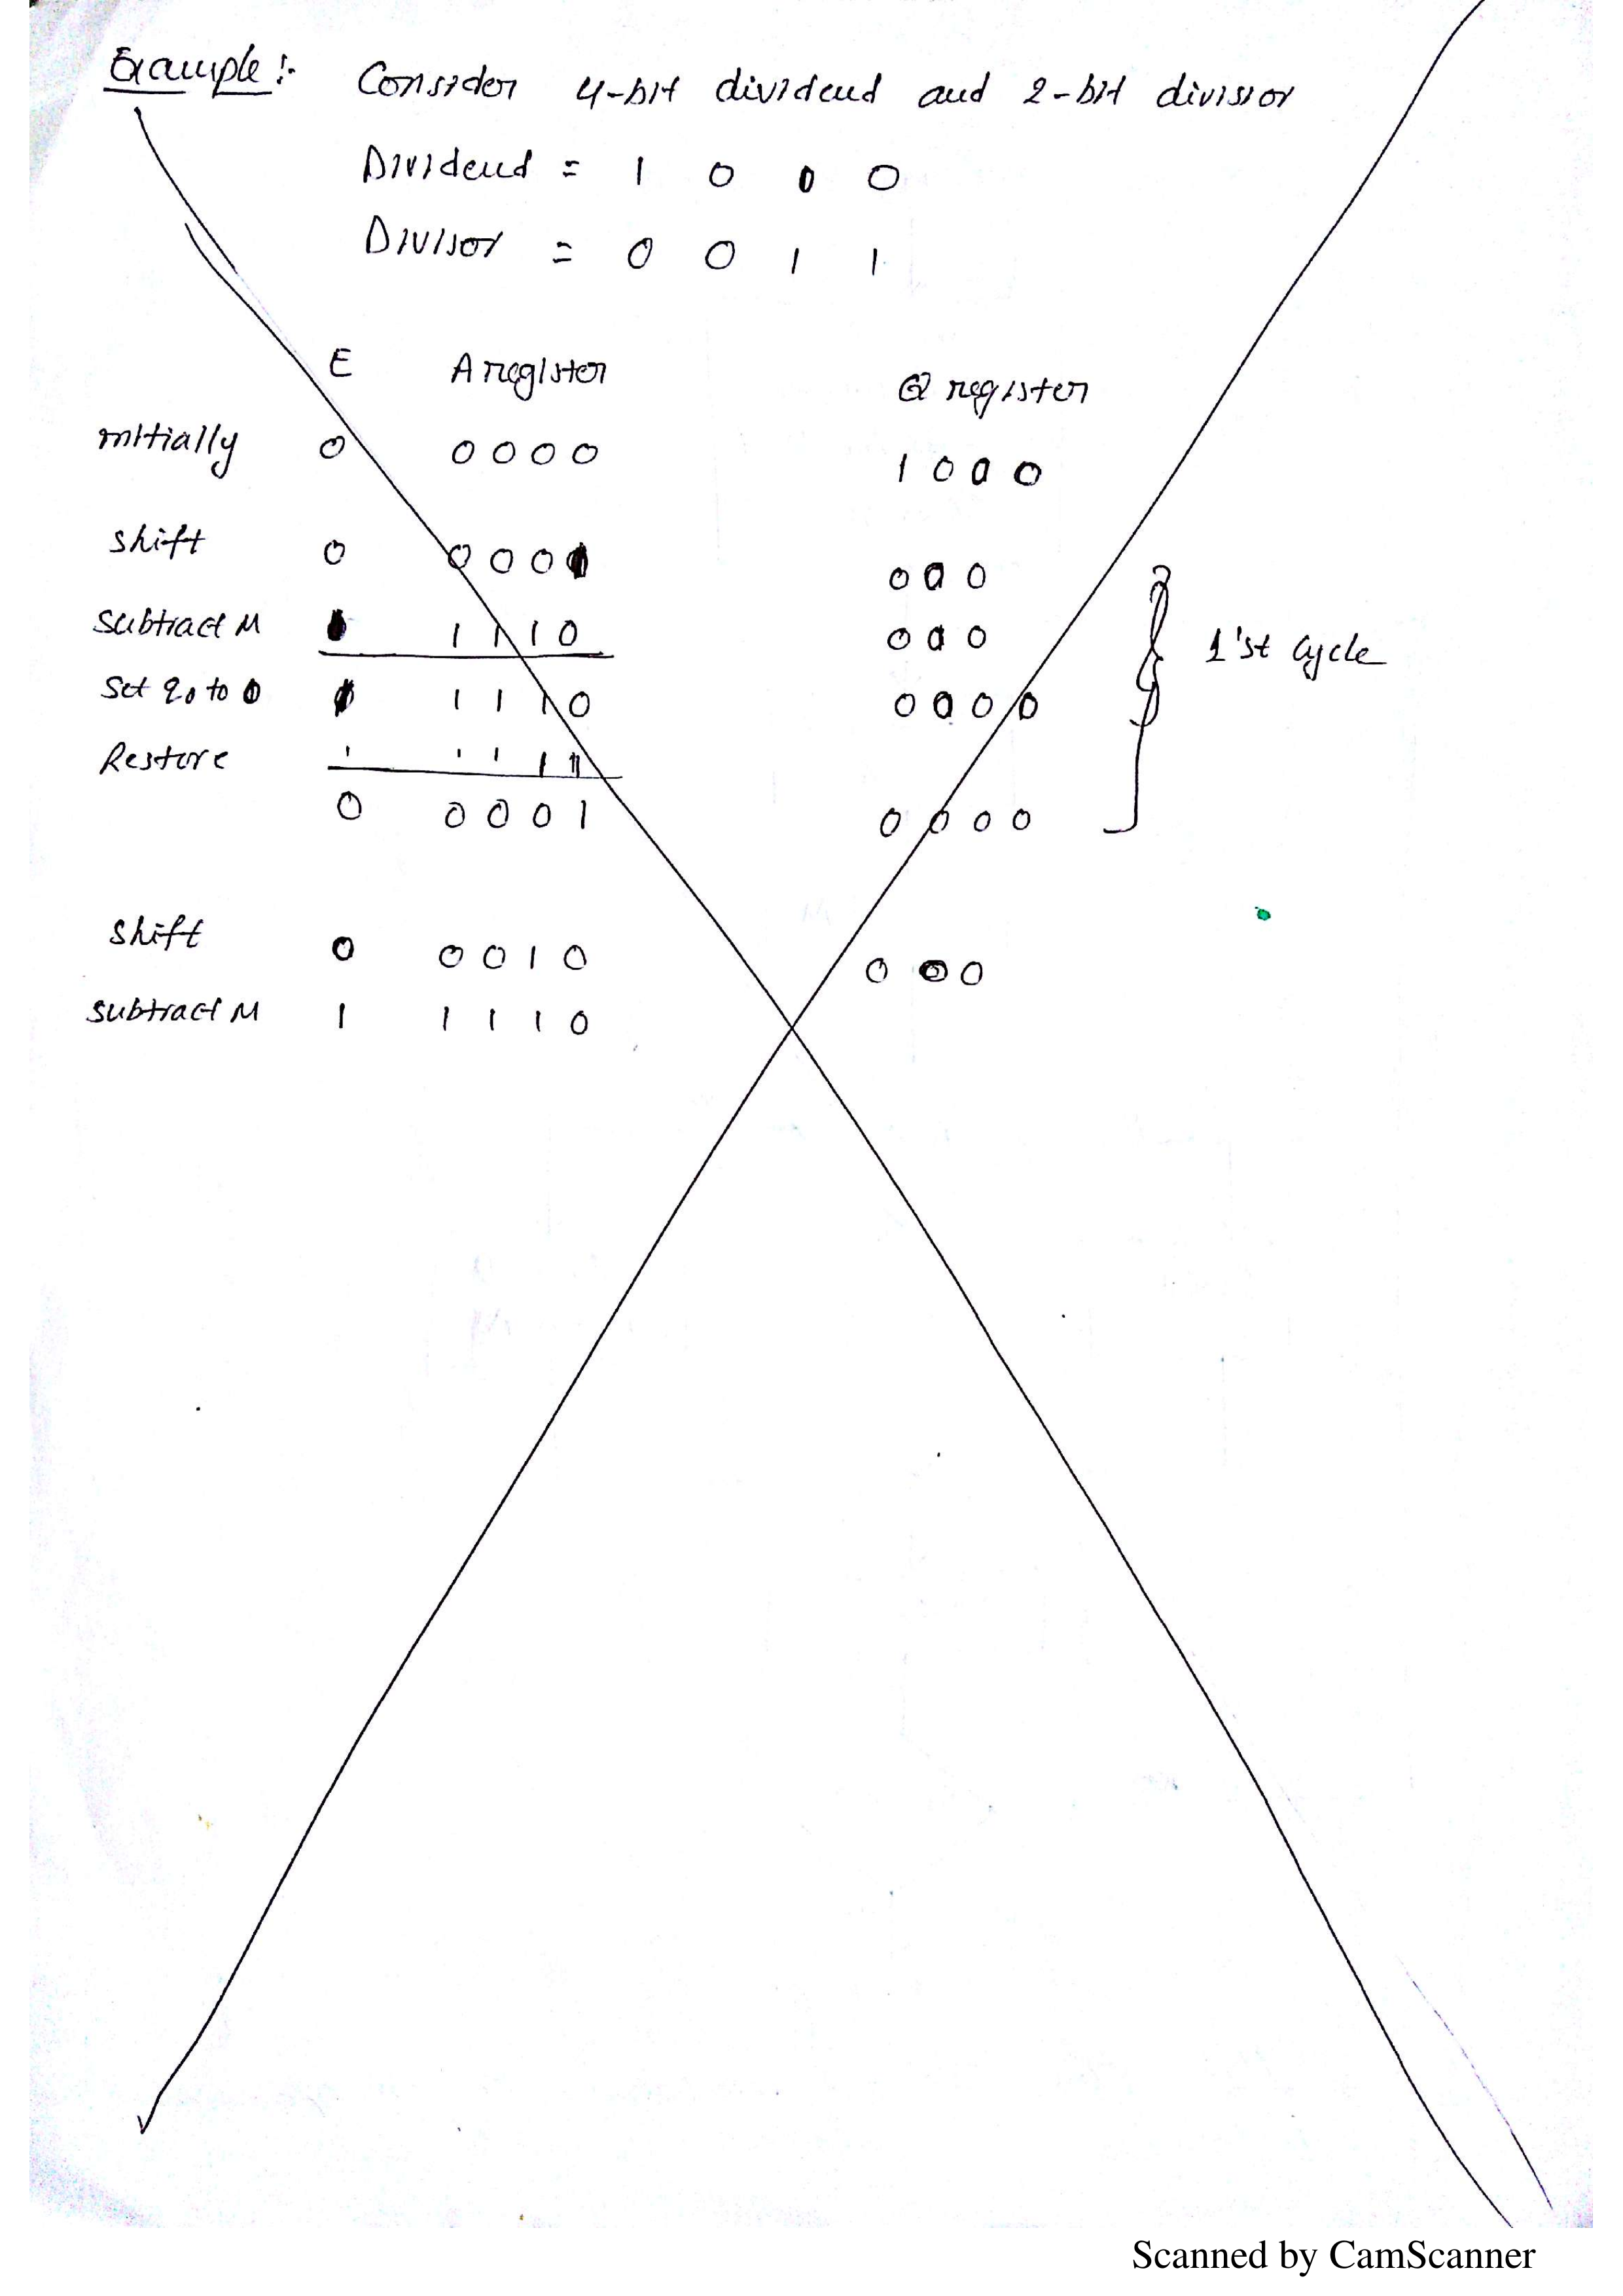 Example :-  Consider 4-bit dividend and 2-bit divisior
Dividend = 1 0 0 0
Divisor = 0 0 1 1
E A register Q register
initially 0 0 0 0 0 1 0 0 0
shift 0 0 0 0 1 0 0 0
subtract M 1 1 1 0 0 0 0
Set q0 to 0 1 1 1 0 0 0 0 0
1'st cycle
Restore 1 1 1 1 1
0 0 0 0 1 0 0 0 0
shift 0 0 0 1 0 0 0 0
subtract M 1 1 1 1 0
Scanned by CamScanner